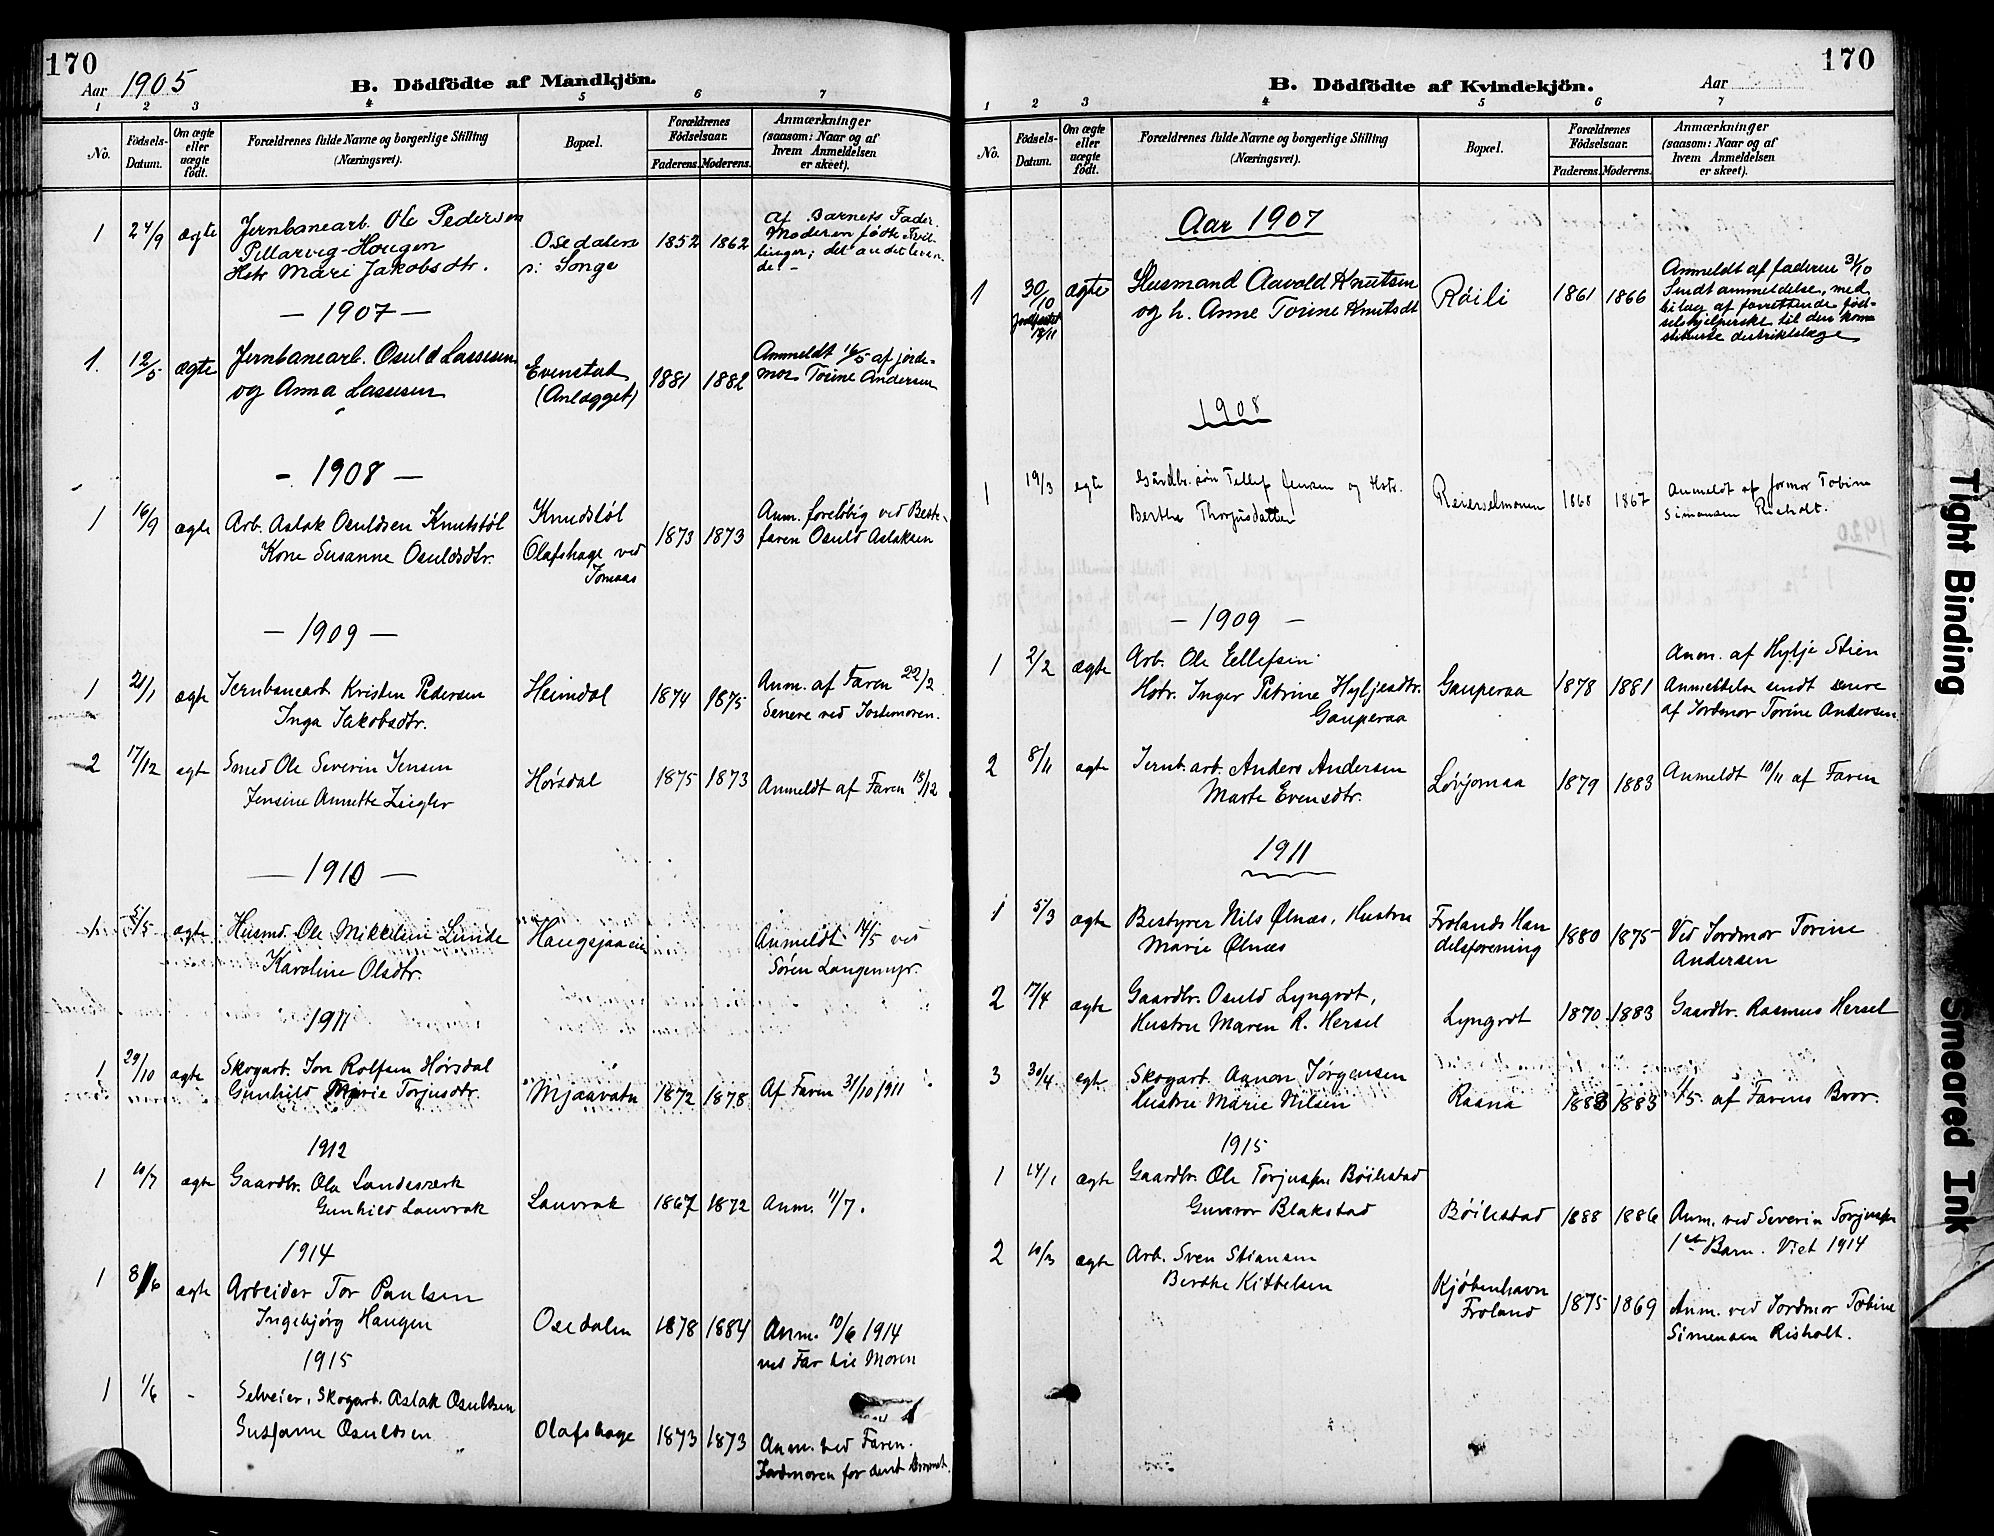 170
Aar 1905
B. Dödfödte af Mandkjön.
1 2 3 4 5 6 7
No.
Födsels-
Datum.
Om ægte
eller
uægte
födt.
Forældrenes fulde Navne og borgerlige Stilling
(Næringsvei).
Bopæl.
Forældrenes
Födselsaar.
Faderens. Moderens.
Anmærkninger
(saasom: Naar og af
hvem Anmeldelsen
er skeet).
1 24/9 ægte Jernbanearb. Ole Pedersen
Pillarvig-Hougen
Hstr Mari Jakobsdtr.
Osedalen
p: Songe
1852 1862
Af Barnets Fader
Moderen födte Tvil-
linger; det andet leven-
de. -
- 1907 -
1. 12/5 ægte Jernbanearb. Osuld Lassesen
og Anna Lassesen
Evenstad
(Anlægget)
1881 1882
Anmeldt 16/5 af jorde-
mor Torine Andersen
- 1908 -
1 16/9 ægte Arb. Aslak Osuldsen Knutstøl
Kone Susanne Osuldsdtr.
Knudstøl
Olafshage ved
Jomaas
1873 1873
Anm. foreløbig ved Beste-
faren Osuld Aslaksen
- 1909 -
1 21/1 ægte Jernbanearb Kristen Pedersen
Inga Jakobsdtr.
Heimdal
1874 1875
Anm. af Faren 22/2
Senere ved Jordmoren.
2 17/12 egt Smed Ole Severin Jensen
Jensine Annette Ziegler
Hørsdal
1875 1873
Anmeldt af Faren 18/12
- 1910 -
1. 5/5 ægte Husmd. Ole Mikkelsen Lunde
Karoline Olsdtr.
Haugsjaaen
Anmeldt 14/5 ved
Søren Langemyr.
1911
1 29/10 ægte Skogarb. Jon Rolfsen Hørsdal
Gunhild Marie Torjusdtr.
Mjaavatn
1872 1878
Af Faren 31/10 1911
1912
1 10/7 ægte Gaardbr. Ola Landsverk
Gunhild Lauvrak
Lauvrak
1867 1872
Anm. 11/7.
1914
1 8/6 ægte Arbeider Tor Paulsen
Ingebjørg Haugen
Osedalen
1878 1884
Anm. 10/6 1914
ved Far til Moren
1915
1 1/6 - Selveier, Skogarb. Aslak Osuldsen
Susanne Osuldsen
Olafshage
1873 1873
Anm. ved Faren.
Jordmoren for sent kommet.
170
B. Dödfödte af Kvindekjön.
Aar
1 2 3 4 5 6 7
No.
Födsels-
Datum.
Om ægte
eller
uægte
födt.
Forældrenes fulde Navne og borgerlige Stilling
(Næringsvei).
Bopæl.
Forældrenes
Födselsaar.
Faderens. Moderens.
Anmærkninger
(saasom: Naar og af
hvem Anmeldelsen
er skeet).
Aar 1907
1 30/10 ægte Husmand Aavold Knutsen
og h. Anne Torine Knutsdt
Røili
1861 1866
Anmeldt af faderen 31/10
Sendt anmeldelse, med
bilag af forrettende fød-
selshjelperske til den kon-
stituerte distriktslæge
1908
1 19/3 egte Gårdbr.søn Tellef Jensen og Hstr.
Berthe Thorjusdatter
Reierselmonen
1868 1867
Anmeldt af jormor Tobine
Simonsen Risholt.
- 1909 -
1 2/2 ægte Arb. Ole Ellefsen
Hstr. Inger Petrine Hyljesdtr.
Gauperaa
Gauperaa
1878 1881
Anm. af Hylje Stien
Anmeldelse sendt senere
af Jordmor Torine Andersen
2 8/11 ægte Jernb.arb. Anders Andersen
Marte Evensdtr.
Løvjomaa
1879 1883
Anmeldt 10/11 af Faren
1911
1 5/3 ægte Bestyrer Nils Ølnæs, Hustru
Marie Ølnæs
Frolands Han
delsforening
1880 1875
Ved Jordmor Torine
Andersen
2 17/4 ægte Gaardbr. Osuld Lyngrot,
Hustru Maren R. Hersel
Lyngrot
1870 1883
Gaardbr. Rasmus Hersel
3 30/4 egte Skogarb. Agnon Jørgensen
Hustru Marie Nilsen
Raana
1883 1883
1/5 af Farens Bror.
1915
1 14/1 ægte Gaardbr. Ole Torjussen Bøilestad
Gunvor Blakstad
Bøilestad
1888 1886
Anm. ved Severin Torjussen
1ste Barn. Viet 1914
2 10/3 ægte Arb. Sven Stiansen
Berthe Kittelsen
Kjøbenhavn
Froland
1875 1869
Anm. ved Jordmor Tobine
Simensen Risholt.
Tight Binding
Smeared Ink